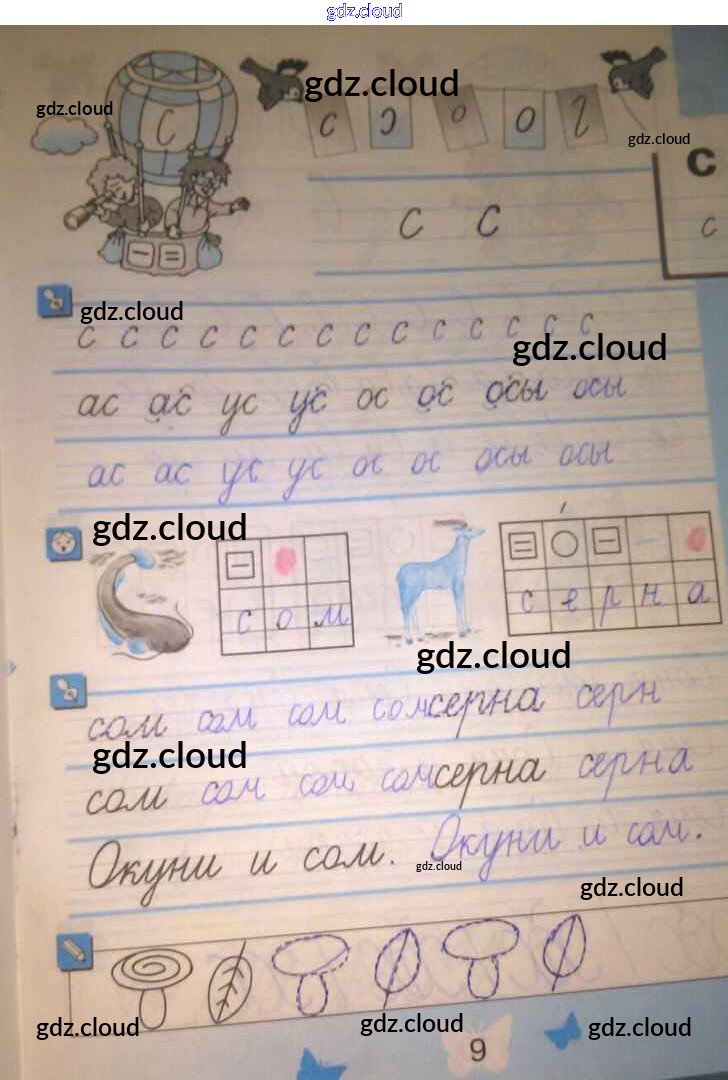 gdz.cloud
gdz.cloud
gdz.cloud
gdz.cloud
С
с с о о
с
с с
с
gdz.cloud
с с с с с с с с с с с с с с
gdz.cloud
ас ас ус ус ос ос осы осы
ас ас ус ус ос ос осы осы
gdz.cloud
сом
серна
gdz.cloud
сом сом сом сом серна серн
gdz.cloud
сом сом сом сом серна серна
Окуни и сом. Окуни и сом.
gdz.cloud
gdz.cloud
gdz.cloud
gdz.cloud
gdz.cloud
9